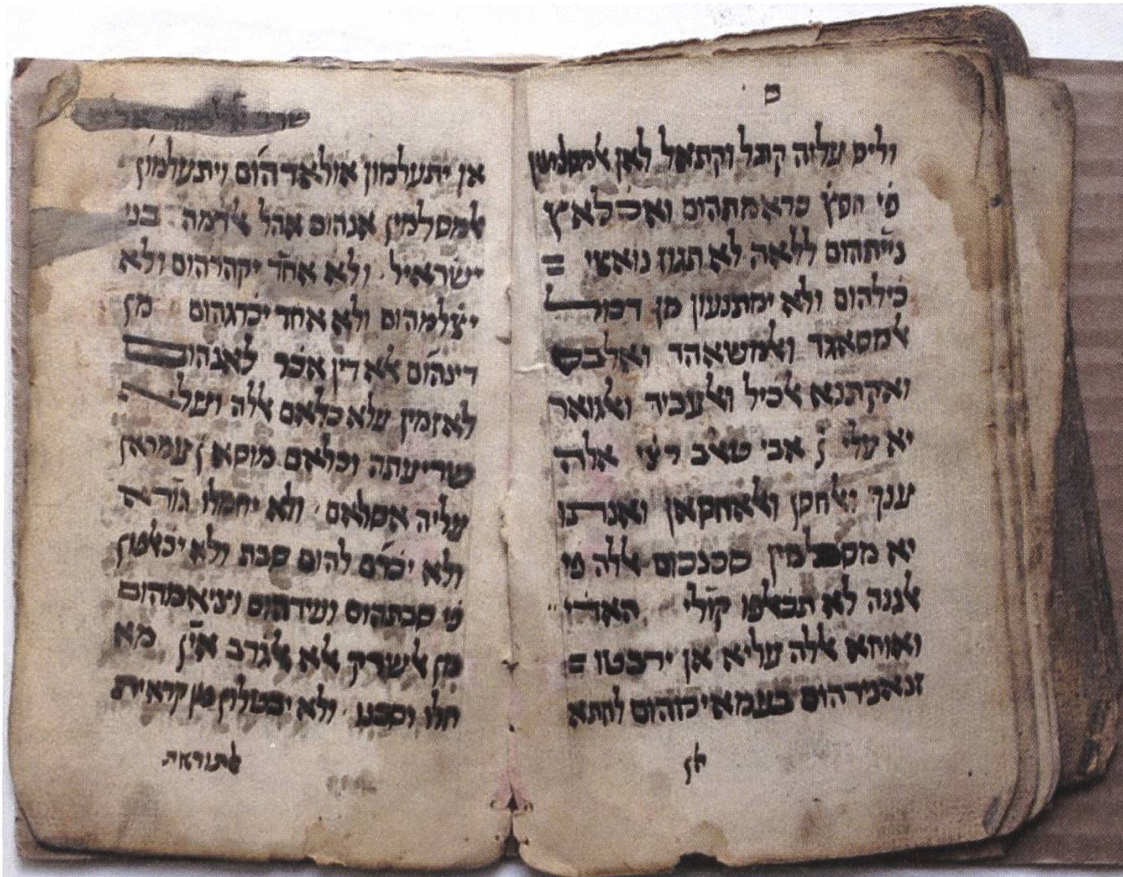 ס
וליס עליה קתל וקתאל לאן אלמסלמין
פי חפץ כראמתהום ואכלאץ
נייתהום ללאה לא תגוז נואצי
כילהום ולא ימתנעון מן דכול
אלמסאגד ואלמשאהד ואלבס
ואקתנא אלכיל ואלעביד ואלגואר
יא עלי ן אבי טאלב רצי אלה
ענך ואלחסן ואלאחסאן ואנתו
יא מסלמין סכנכום אללה פי
אלגנה לא תכאלפו קולי האדי
ואוחא אללה עליא אן ירבטו
זנאנירהום בעמאימהום לחתא
אן
אן יתעלמון אולאדהום ויתעלמון
אלמסלמין אנהום אהל אלדמה בני
ישראיל ולא אחד יקהרהום ולא
יצלמהום ולא אחד יכרגהום מן
דינהום אלא דין אכר לאנהום
לאזמין עלא כלאם אללה ועלי
שריעתה וכלאם מוסא ן עמראן
עליה אסלאם ולא יחמלו גוראר
ולא יכרם להום סבת ולא יכאלטון
פי סבתהום ועידהום וציאמהום
מן אלשרק אלא אלגרב אין מא
חלו וסכנו ולא יבטלון מן קראית
אלתוראת